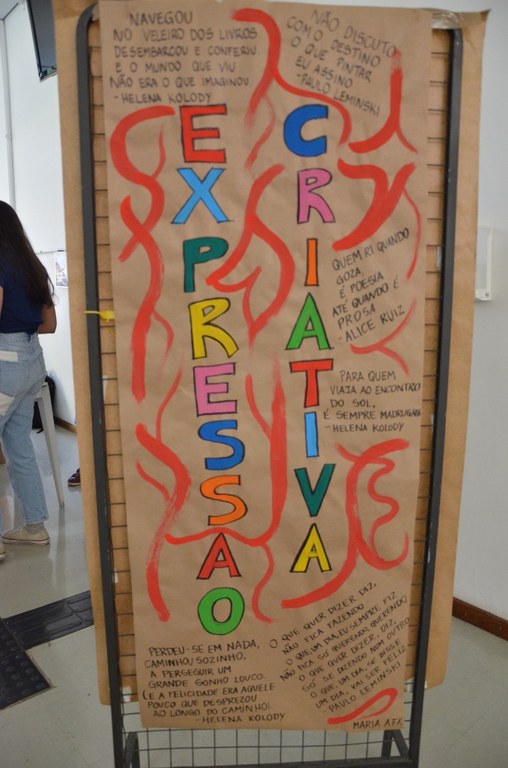 NAVEGOU
NO VELEIRO DOS LIVROS
DESEMBARCOU E CONFERIU
E O MUNDO QUE VIU
NÃO ERA O QUE IMAGINOU
-HELENA KOLODY
NÃO DISCUTO
COM O DESTINO
O QUE PINTAR
EU ASSINO
-PAULO LEMINSKI
EXPRESSAO
CRIATIVA
QUEM RI QUANDO
GOZA
É POESIA
ATÉ QUANDO É
PROSA
-ALICE RUIZ
PARA QUEM
VIAJA AO ENCONTRO
DO SOL,
É SEMPRE MADRUGADA
-HELENA KOLODY
PERDEU-SE EM NADA,
CAMINHOU SOZINHO,
A PERSEGUIR UM
GRANDE SONHO LOUCO.
(E A FELICIDADE ERA AQUELE
POUCO QUE DESPREZOU
AO LONGO DO CAMINHO)
-HELENA KOLODY
O QUE QUER DIZER DIZ,
NÃO FICA FAZENDO
O QUE UM DIA EU SEMPRE FIZ
NÃO FICA SÓ QUERENDO, QUERENDO
O QUE QUER DIZER, DIZ,
SÓ SE DIZENDO NUM OUTRO
O QUE UM DIA, SE DISSE
UM DIA, VAI SER FELIZ
-PAULO LEMINSKI
MARIA AFX